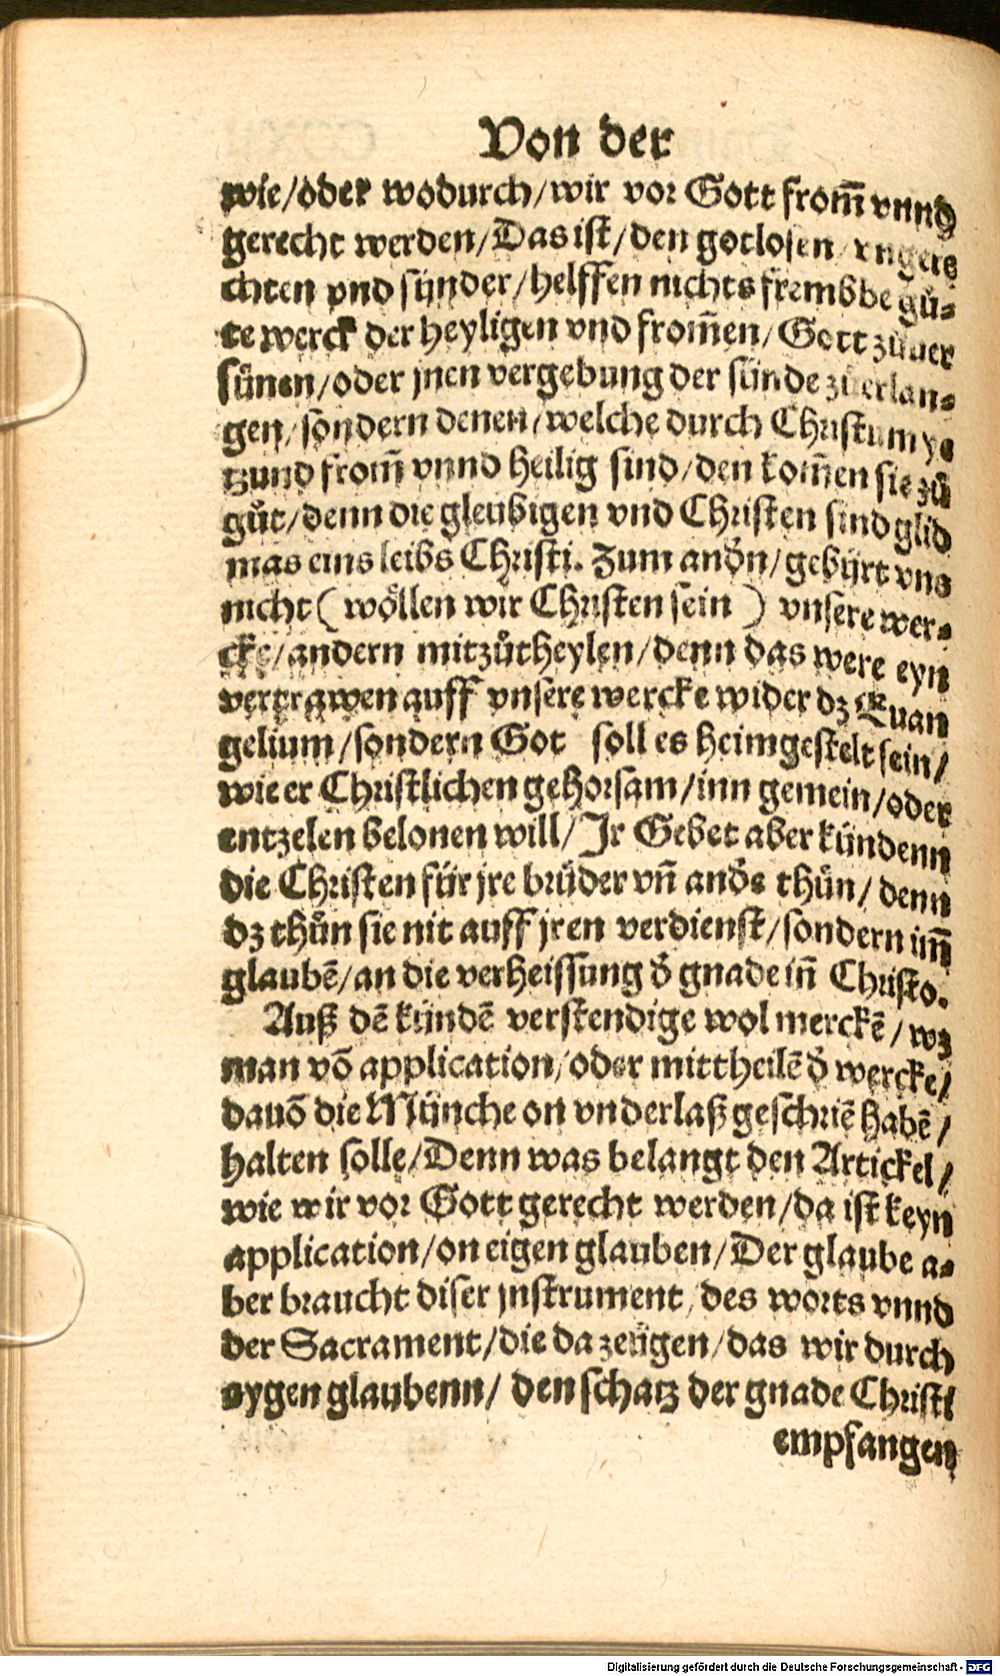 Von der
wie/oder wodurch/wir vor Gott from̄ vnnd
gerecht werden/Das ist/den gotlosen/vngere⸗
chten vnd sünder/helffen nichts frembde gů⸗
te werck der heyligen vnd from̄en/Gott zůuer
sünen/oder jnen vergebung der sünde zůerlan⸗
gen/sondern denen/welche durch Christum ye
tzund from̄ vnnd heilig sind/den kom̄en sie zů
gůt/denn die gleubigen vnd Christen sind glid
mas eins leibs Christi. Zum andn̄/gebürt vns
nicht ( wöllen wir Christen sein ) vnsere wer⸗
cke/andern mitzůtheylen/denn das were eyn
vertrawen auff vnsere wercke wider dz Euan
gelium/sondern Got soll es heimgestelt sein/
wie er Christlichen gehorsam/inn gemein/oder
entzelen belonen will/Jr Gebet aber kündenn
die Christen für jre brüder vn̄ and̄e thůn/denn
dz thůn sie nit auff jren verdienst/sondern im̄
glaubē/an die verheissung d̄ gnade in̄ Christo.
Auß dē kündē verstendige wol merckē/wz
man vō application/oder mittheilē d̄ wercke/
dauō die Münche on vnderlaß geschriē habē/
halten solle/Denn was belangt den Artickel/
wie wir vor Gott gerecht werden/da ist keyn
application/on eigen glauben/Der glaube a⸗
ber braucht diser jnstrument/des worts vnnd
der Sacrament/die da zeügen/das wir durch
eygen glaubenn/den schatz der gnade Christi
empfangen
Digitalisierung gefördert durch die Deutsche Forschungsgemeinschaft - DFG